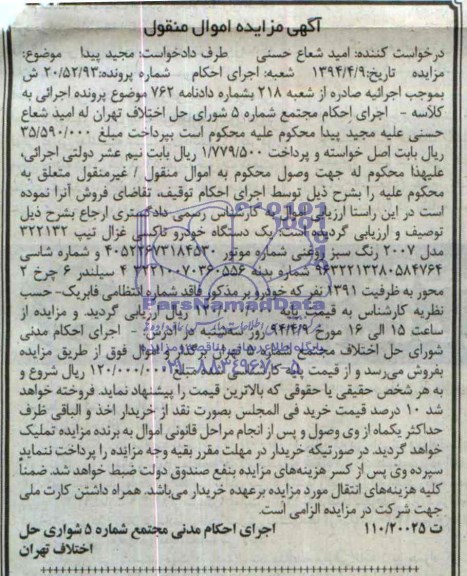 آگهی مزایده اموال منقول
درخواست کننده: امید شعاع حسنی طرف دادخواست: مجید پیدا موضوع:
مزایده تاریخ:۱۳۹۴/۴/۹ شعبه: اجرای احکام شماره پرونده:۲۰/۵۲/۹۳ ش
بموجب اجرائیه صادره از شعبه ۲۱۸ بشماره دادنامه ۷۶۲ موضوع پرونده اجرائی به
کلاسه - اجرای احکام مجتمع شماره ۵ شورای حل اختلاف تهران له امید شعاع
حسنی علیه مجید پیدا محکوم علیه محکوم است بپرداخت مبلغ ۳۵/۵۹۰/۰۰۰
ریال بابت اصل خواسته و پرداخت ۱/۷۷۹/۵۰۰ ریال بابت نیم عشر دولتی اجرائی،
علیهذا محکوم له جهت وصول محکوم به اموال منقول / غیرمنقول متعلق به
محکوم علیه را بشرح ذیل توسط اجرای احکام توقیف، تقاضای فروش آنرا نموده
است در این راستا ارزیابی اموال به کارشناس رسمی دادگستری ارجاع بشرح ذیل
توصیف و ارزیابی گردیده است: یک دستگاه خودرو تاکسی غزال تیپ ۳۲۲۱۳۲
مدل ۲۰۰۷ رنگ سبز روغنی شماره موتور ۴۰۵۲۲۶۷۳۱۸۴۵۳۰ و شماره شاسی
۹۶۳۲۲۱۳۲۸۰۵۸۴۷۶۴ شماره بدنه ۳۲۲۱۰۰۷۰۳۶۰۵۵۶ ۴ سیلندر ۶ چرخ ۲
محور به ظرفیت ۱۳۹۱ نفر که خودرو بر مذکور فاقد شماره انتظامی فابریک- حسب
نظریه کارشناس به قیمت پایه ۱۲۰ ریال ارزیابی گردید. و مزایده از
ساعت ۱۵ الی ۱۶ مورخ ۹۴/۴/۹ روز سه‌شنبه در آدرس - اجرای احکام مدنی
شورای حل اختلاف مجتمع شماره ۵ تهران برگذار و اموال فوق از طریق مزایده
بفروش می‌رسد و از قیمت پایه کارشناسی شده مبلغ ۱۲۰/۰۰۰/۰۰۰ ریال شروع و
به هر شخص حقیقی یا حقوقی که بالاترین قیمت را پیشنهاد نماید. فروخته خواهد
شد ۱۰ درصد قیمت خرید فی المجلس بصورت نقد از خریدار اخذ و الباقی ظرف
حداکثر یکماه از وی وصول و پس از انجام مراحل قانونی اموال به برنده مزایده تملیک
خواهد گردید. در صورتیکه خریدار در مهلت مقرر بقیه وجه مزایده را پرداخت ننماید
سپرده وی پس از کسر هزینه‌های مزایده بنفع صندوق دولت ضبط خواهد شد. ضمناً
کلیه هزینه‌های انتقال مورد مزایده برعهده خریدار می‌باشد. همراه داشتن کارت ملی
جهت شرکت در مزایده الزامی است.
ت ۱۱۰/۲۰۰۲۵ اجرای احکام مدنی مجتمع شماره ۵ شواری حل
اختلاف تهران
ParsNamadData
۰۲۱-۸۸۳۴۹۶۷۰-۵